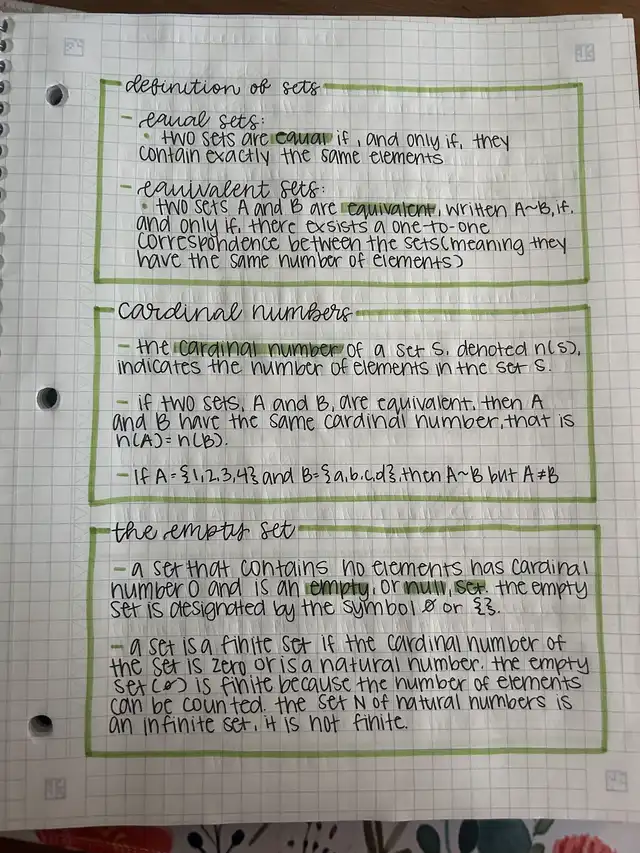 definition of sets
- equal sets:
• two sets are equal if, and only if, they
contain exactly the same elements
- equivalent sets:
• two sets A and B are equivalent, written A~B, if,
and only if, there exsists a one-to-one
correspondence between the sets (meaning they
have the same number of elements)
cardinal numbers
- the cardinal number of a set S, denoted n(S),
indicates the number of elements in the set S.
- if two sets, A and B, are equivalent, then A
and B have the same cardinal number, that is
n(A) = n(B).
- If A = {1,2,3,4} and B = {a,b,c,d}, then A~B but A≠B
the empty set
- a set that contains no elements has cardinal
number 0 and is an empty, or null, set. the empty
set is designated by the symbol ∅ or {}.
- a set is a finite set if the cardinal number of
the set is zero or is a natural number. the empty
set (∅) is finite because the number of elements
can be counted. the set N of natural numbers is
an infinite set, it is not finite.